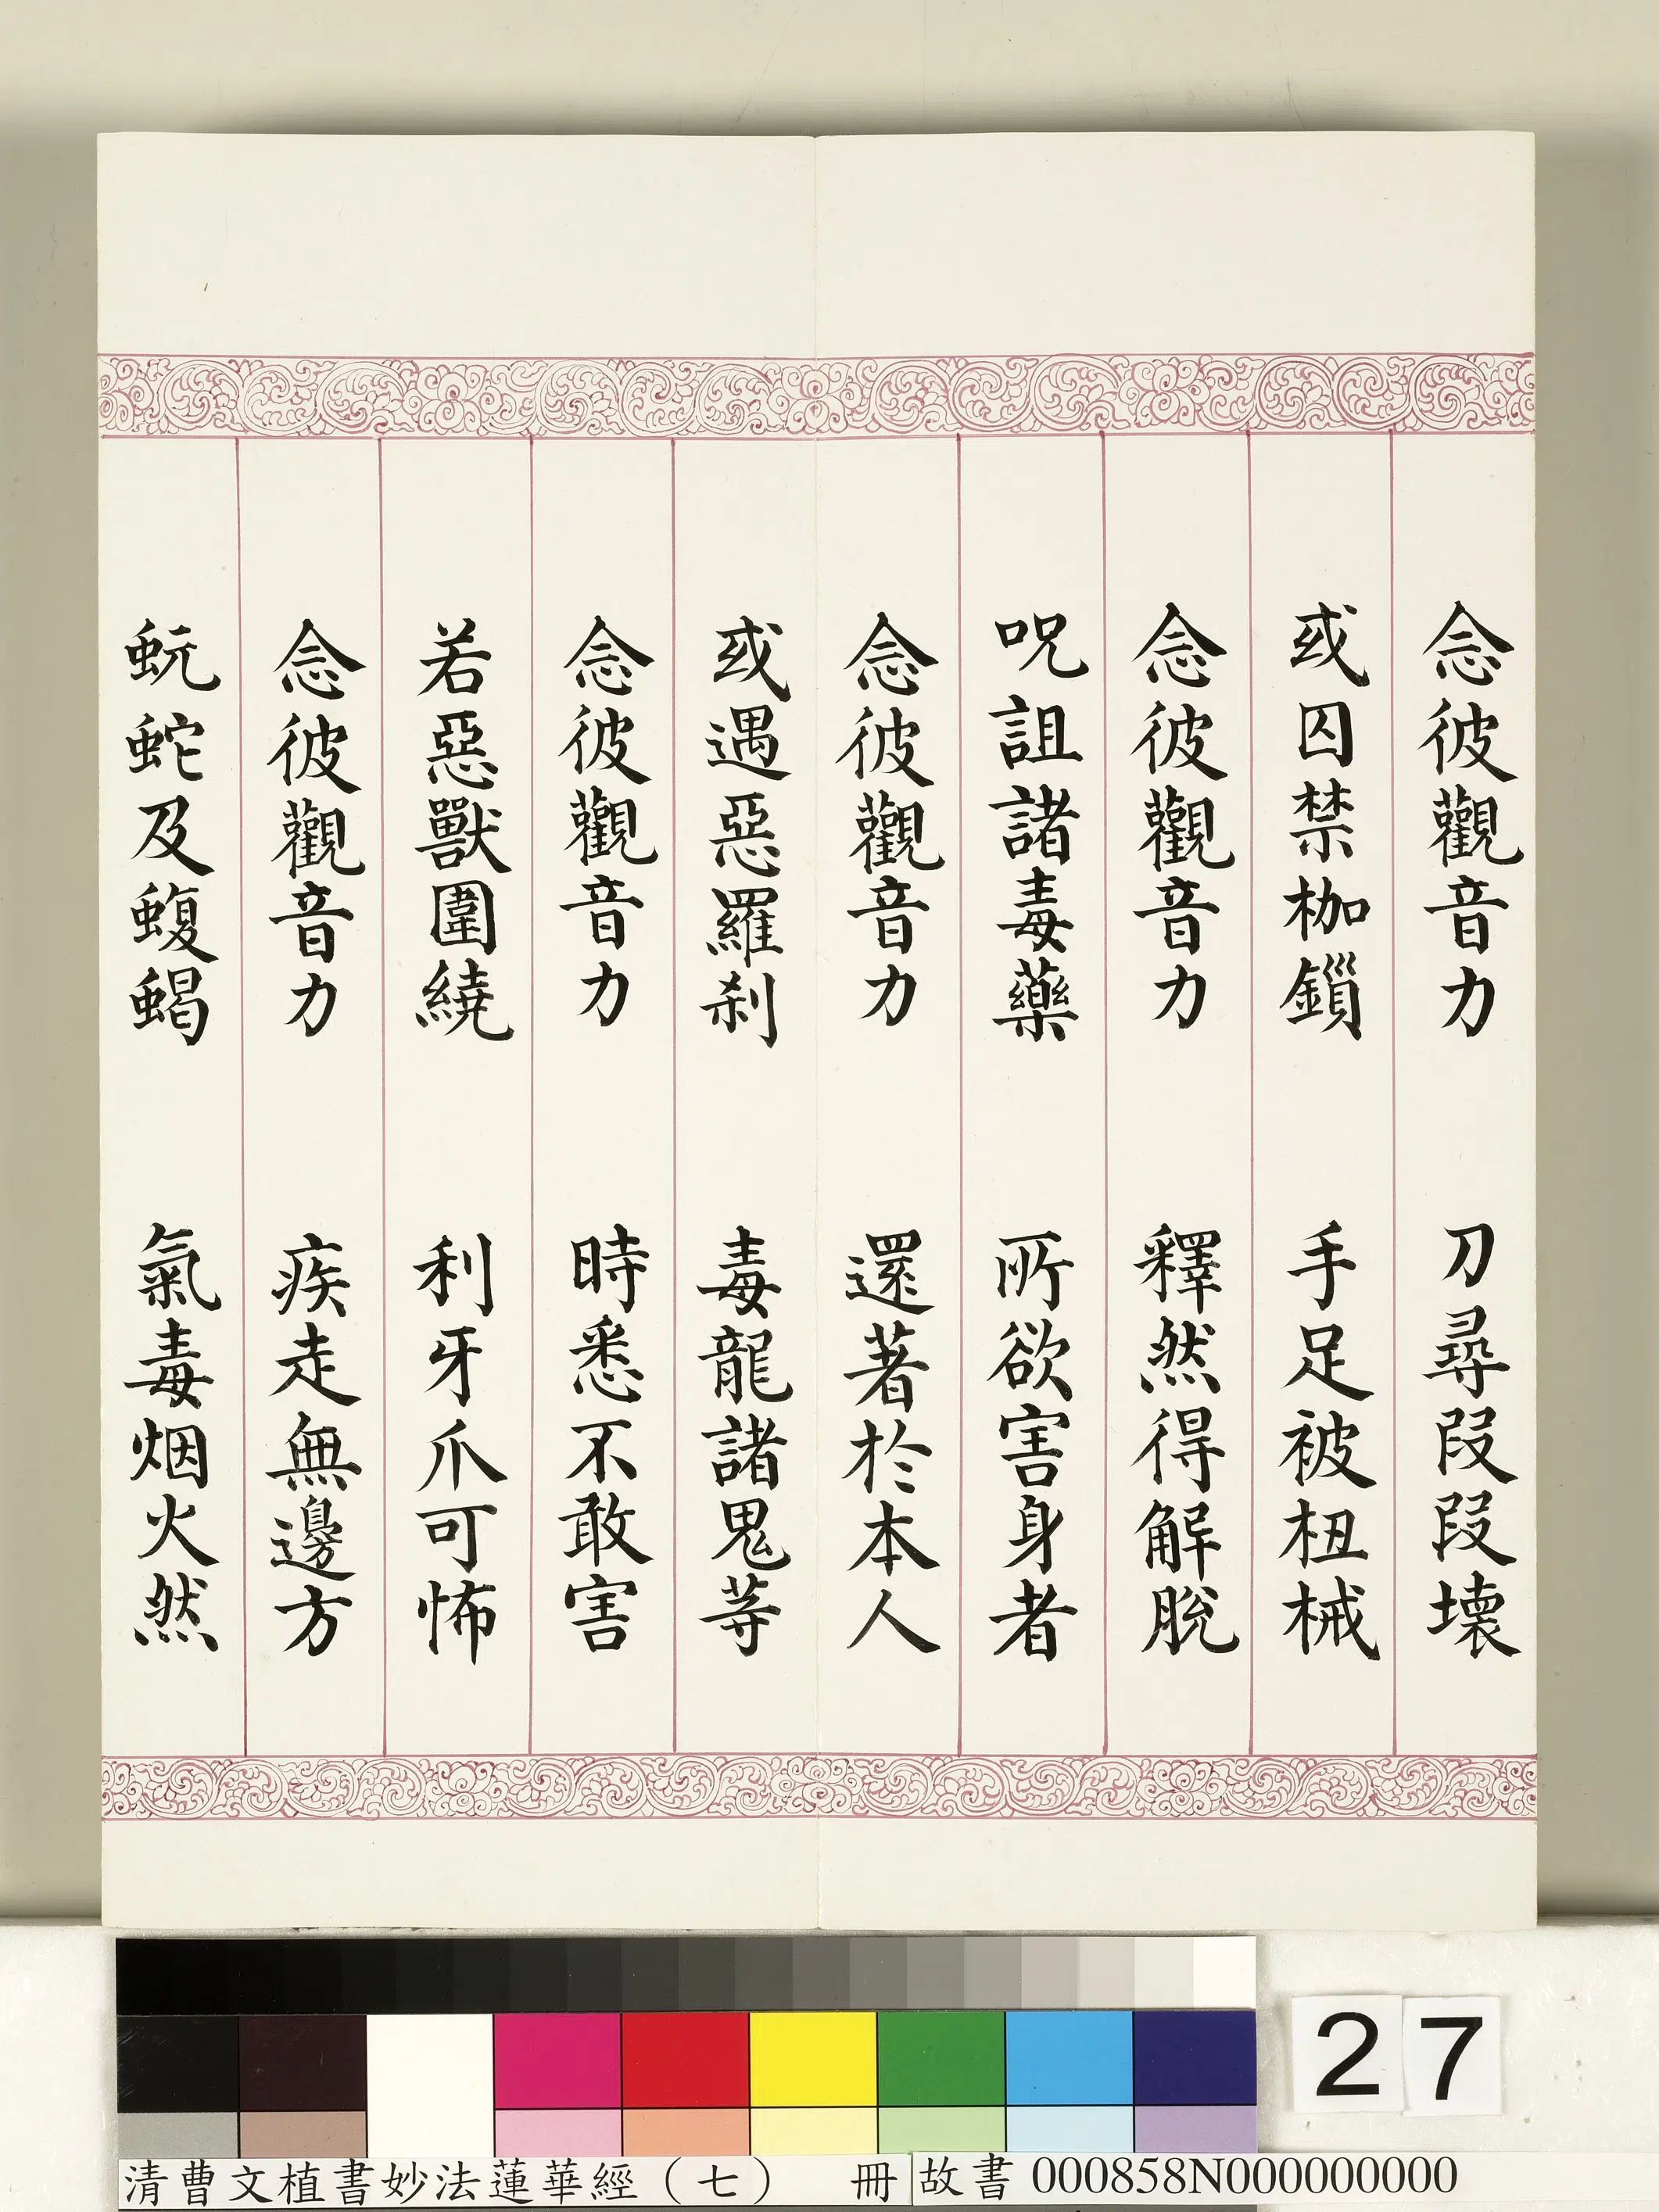 念彼觀音力　刀尋段段壞
或囚禁枷鎻　手足被杻械
念彼觀音力　釋然得解脫
呪詛諸毒藥　所欲害身者
念彼觀音力　還著於本人
或遇惡羅刹　毒龍諸鬼等
念彼觀音力　時悉不敢害
若惡獸圍繞　利牙爪可怖
念彼觀音力　疾走無邊方
蚖蛇及蝮蝎　氣毒烟火然
27
清曹文植書妙法蓮華經（七）　冊
故書000858N000000000